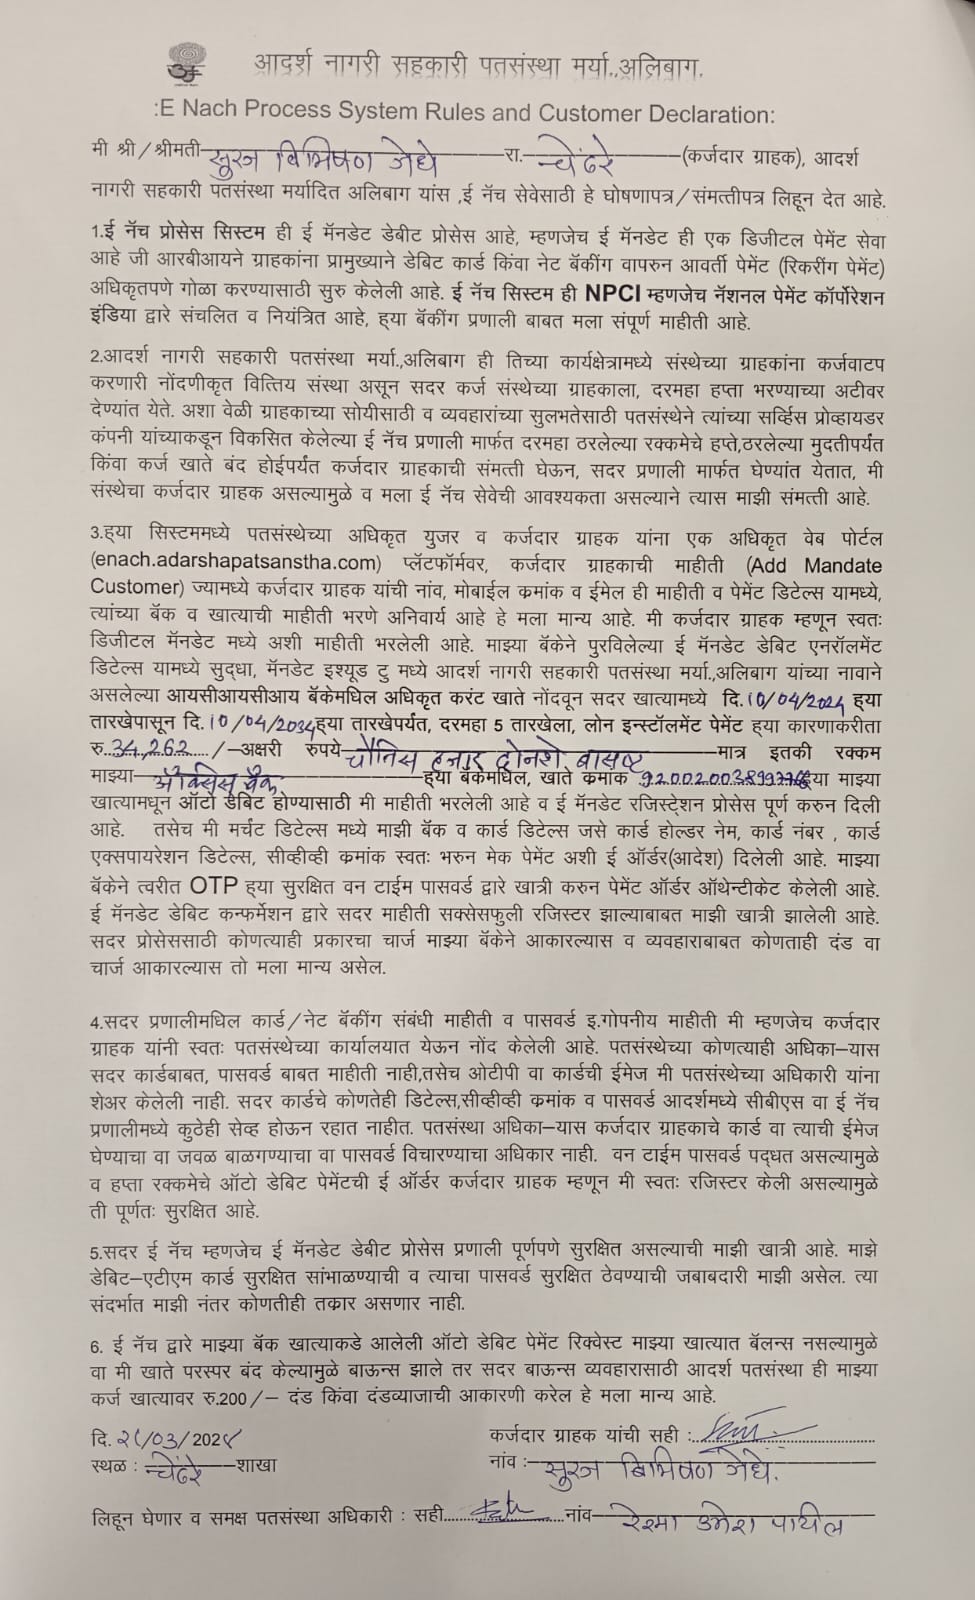 आदर्श नागरी सहकारी पतसंस्था मर्या.,अलिबाग.
:E Nach Process System Rules and Customer Declaration:
मी श्री/श्रीमती सुरज बिभिषण जेधे रा. चेंढरे (कर्जदार ग्राहक), आदर्श
नागरी सहकारी पतसंस्था मर्यादित अलिबाग यांस ,ई नॅच सेवेसाठी हे घोषणापत्र/संमत्तीपत्र लिहून देत आहे.
1.ई नॅच प्रोसेस सिस्टम ही ई मॅनडेट डेबीट प्रोसेस आहे, म्हणजेच ई मॅनडेट ही एक डिजीटल पेमेंट सेवा
आहे जी आरबीआयने ग्राहकांना प्रामुख्याने डेबिट कार्ड किंवा नेट बॅकींग वापरुन आवर्ती पेमेंट (रिकरींग पेमेंट)
अधिकृतपणे गोळा करण्यासाठी सुरु केलेली आहे. ई नॅच सिस्टम ही NPCI म्हणजेच नॅशनल पेमेंट कॉर्पोरेशन
इंडिया द्वारे संचलित व नियंत्रित आहे, ह्या बॅकींग प्रणाली बाबत मला संपूर्ण माहीती आहे.
2.आदर्श नागरी सहकारी पतसंस्था मर्या.,अलिबाग ही तिच्या कार्यक्षेत्रामध्ये संस्थेच्या ग्राहकांना कर्जवाटप
करणारी नोंदणीकृत वित्तिय संस्था असून सदर कर्ज संस्थेच्या ग्राहकाला, दरमहा हप्ता भरण्याच्या अटीवर
देण्यांत येते. अशा वेळी ग्राहकाच्या सोयीसाठी व व्यवहारांच्या सुलभतेसाठी पतसंस्थेने त्यांच्या सर्व्हिस प्रोव्हायडर
कंपनी यांच्याकडून विकसित केलेल्या ई नॅच प्रणाली मार्फत दरमहा ठरलेल्या रक्कमेचे हप्ते,ठरलेल्या मुदतीपर्यंत
किंवा कर्ज खाते बंद होईपर्यंत कर्जदार ग्राहकाची संमत्ती घेऊन, सदर प्रणाली मार्फत घेण्यांत येतात, मी
संस्थेचा कर्जदार ग्राहक असल्यामुळे व मला ई नॅच सेवेची आवश्यकता असल्याने त्यास माझी संमत्ती आहे.
3.ह्या सिस्टममध्ये पतसंस्थेच्या अधिकृत युजर व कर्जदार ग्राहक यांना एक अधिकृत वेब पोर्टल
(enach.adarshapatsanstha.com) प्लॅटफॉर्मवर, कर्जदार ग्राहकाची माहीती (Add Mandate
Customer) ज्यामध्ये कर्जदार ग्राहक यांची नांव, मोबाईल क्रमांक व ईमेल ही माहीती व पेमेंट डिटेल्स यामध्ये,
त्यांच्या बॅक व खात्याची माहीती भरणे अनिवार्य आहे हे मला मान्य आहे. मी कर्जदार ग्राहक म्हणून स्वतः
डिजीटल मॅनडेट मध्ये अशी माहीती भरलेली आहे. माझ्या बॅकेने पुरविलेल्या ई मॅनडेट डेबिट एनरॉलमेंट
डिटेल्स यामध्ये सुद्धा, मॅनडेट इश्यूड टु मध्ये आदर्श नागरी सहकारी पतसंस्था मर्या.,अलिबाग यांच्या नावाने
असलेल्या आयसीआयसीआय बॅकेमधिल अधिकृत करंट खाते नोंदवून सदर खात्यामध्ये दि.10/04/2024 ह्या
तारखेपासून दि.10/04/2034ह्या तारखेपर्यंत, दरमहा 5 तारखेला, लोन इन्स्टॉलमेंट पेमेंट ह्या कारणाकरीता
रु.34,262/-अक्षरी रुपये चौतिस हजार दोनशे बासष्ट मात्र इतकी रक्कम
माझ्या अ‍ॅक्सिस बँक ह्या बॅकेमधिल, खाते क्रमांक ह्या माझ्या
खात्यामधून ऑटो डेबिट होण्यासाठी मी माहीती भरलेली आहे व ई मॅनडेट रजिस्ट्रेशन प्रोसेस पूर्ण करुन दिली
आहे. तसेच मी मर्चंट डिटेल्स मध्ये माझी बॅक व कार्ड डिटेल्स जसे कार्ड होल्डर नेम, कार्ड नंबर , कार्ड
एक्सपायरेशन डिटेल्स, सीव्हीव्ही क्रमांक स्वतः भरुन मेक पेमेंट अशी ई ऑर्डर(आदेश) दिलेली आहे. माझ्या
बॅकेने त्वरीत OTP ह्या सुरक्षित वन टाईम पासवर्ड द्वारे खात्री करुन पेमेंट ऑर्डर ऑथेन्टीकेट केलेली आहे.
ई मॅनडेट डेबिट कन्फर्मेशन द्वारे सदर माहीती सक्सेसफुली रजिस्टर झाल्याबाबत माझी खात्री झालेली आहे.
सदर प्रोसेससाठी कोणत्याही प्रकारचा चार्ज माझ्या बॅकेने आकारल्यास व व्यवहाराबाबत कोणताही दंड वा
चार्ज आकारल्यास तो मला मान्य असेल.
4.सदर प्रणालीमधिल कार्ड/नेट बॅकींग संबंधी माहीती व पासवर्ड इ.गोपनीय माहीती मी म्हणजेच कर्जदार
ग्राहक यांनी स्वतः पतसंस्थेच्या कार्यालयात येऊन नोंद केलेली आहे. पतसंस्थेच्या कोणत्याही अधिका-यास
सदर कार्डबाबत, पासवर्ड बाबत माहीती नाही,तसेच ओटीपी वा कार्डची ईमेज मी पतसंस्थेच्या अधिकारी यांना
शेअर केलेली नाही. सदर कार्डचे कोणतेही डिटेल्स,सीव्हीव्ही क्रमांक व पासवर्ड आदर्शमध्ये सीबीएस वा ई नॅच
प्रणालीमध्ये कुठेही सेव्ह होऊन रहात नाहीत. पतसंस्था अधिका-यास कर्जदार ग्राहकाचे कार्ड वा त्याची ईमेज
घेण्याचा वा जवळ बाळगण्याचा वा पासवर्ड विचारण्याचा अधिकार नाही. वन टाईम पासवर्ड पद्धत असल्यामुळे
व हप्ता रक्कमेचे ऑटो डेबिट पेमेंटची ई ऑर्डर कर्जदार ग्राहक म्हणून मी स्वतः रजिस्टर केली असल्यामुळे
ती पूर्णतः सुरक्षित आहे.
5.सदर ई नॅच म्हणजेच ई मॅनडेट डेबीट प्रोसेस प्रणाली पूर्णपणे सुरक्षित असल्याची माझी खात्री आहे. माझे
डेबिट-एटीएम कार्ड सुरक्षित सांभाळण्याची व त्याचा पासवर्ड सुरक्षित ठेवण्याची जबाबदारी माझी असेल. त्या
संदर्भात माझी नंतर कोणतीही तक्रार असणार नाही.
6. ई नॅच द्वारे माझ्या बॅक खात्याकडे आलेली ऑटो डेबिट पेमेंट रिक्वेस्ट माझ्या खात्यात बॅलन्स नसल्यामुळे
वा मी खाते परस्पर बंद केल्यामुळे बाऊन्स झाले तर सदर बाऊन्स व्यवहारासाठी आदर्श पतसंस्था ही माझ्या
कर्ज खात्यावर रु.200/- दंड किंवा दंडव्याजाची आकारणी करेल हे मला मान्य आहे.
दि. /03/2024 कर्जदार ग्राहक यांची सही :
स्थळ : चेंढरे शाखा नांव : सुरज बिभिषण जेधे.
लिहून घेणार व समक्ष पतसंस्था अधिकारी : सही नांव रेश्मा उमेश पाटील